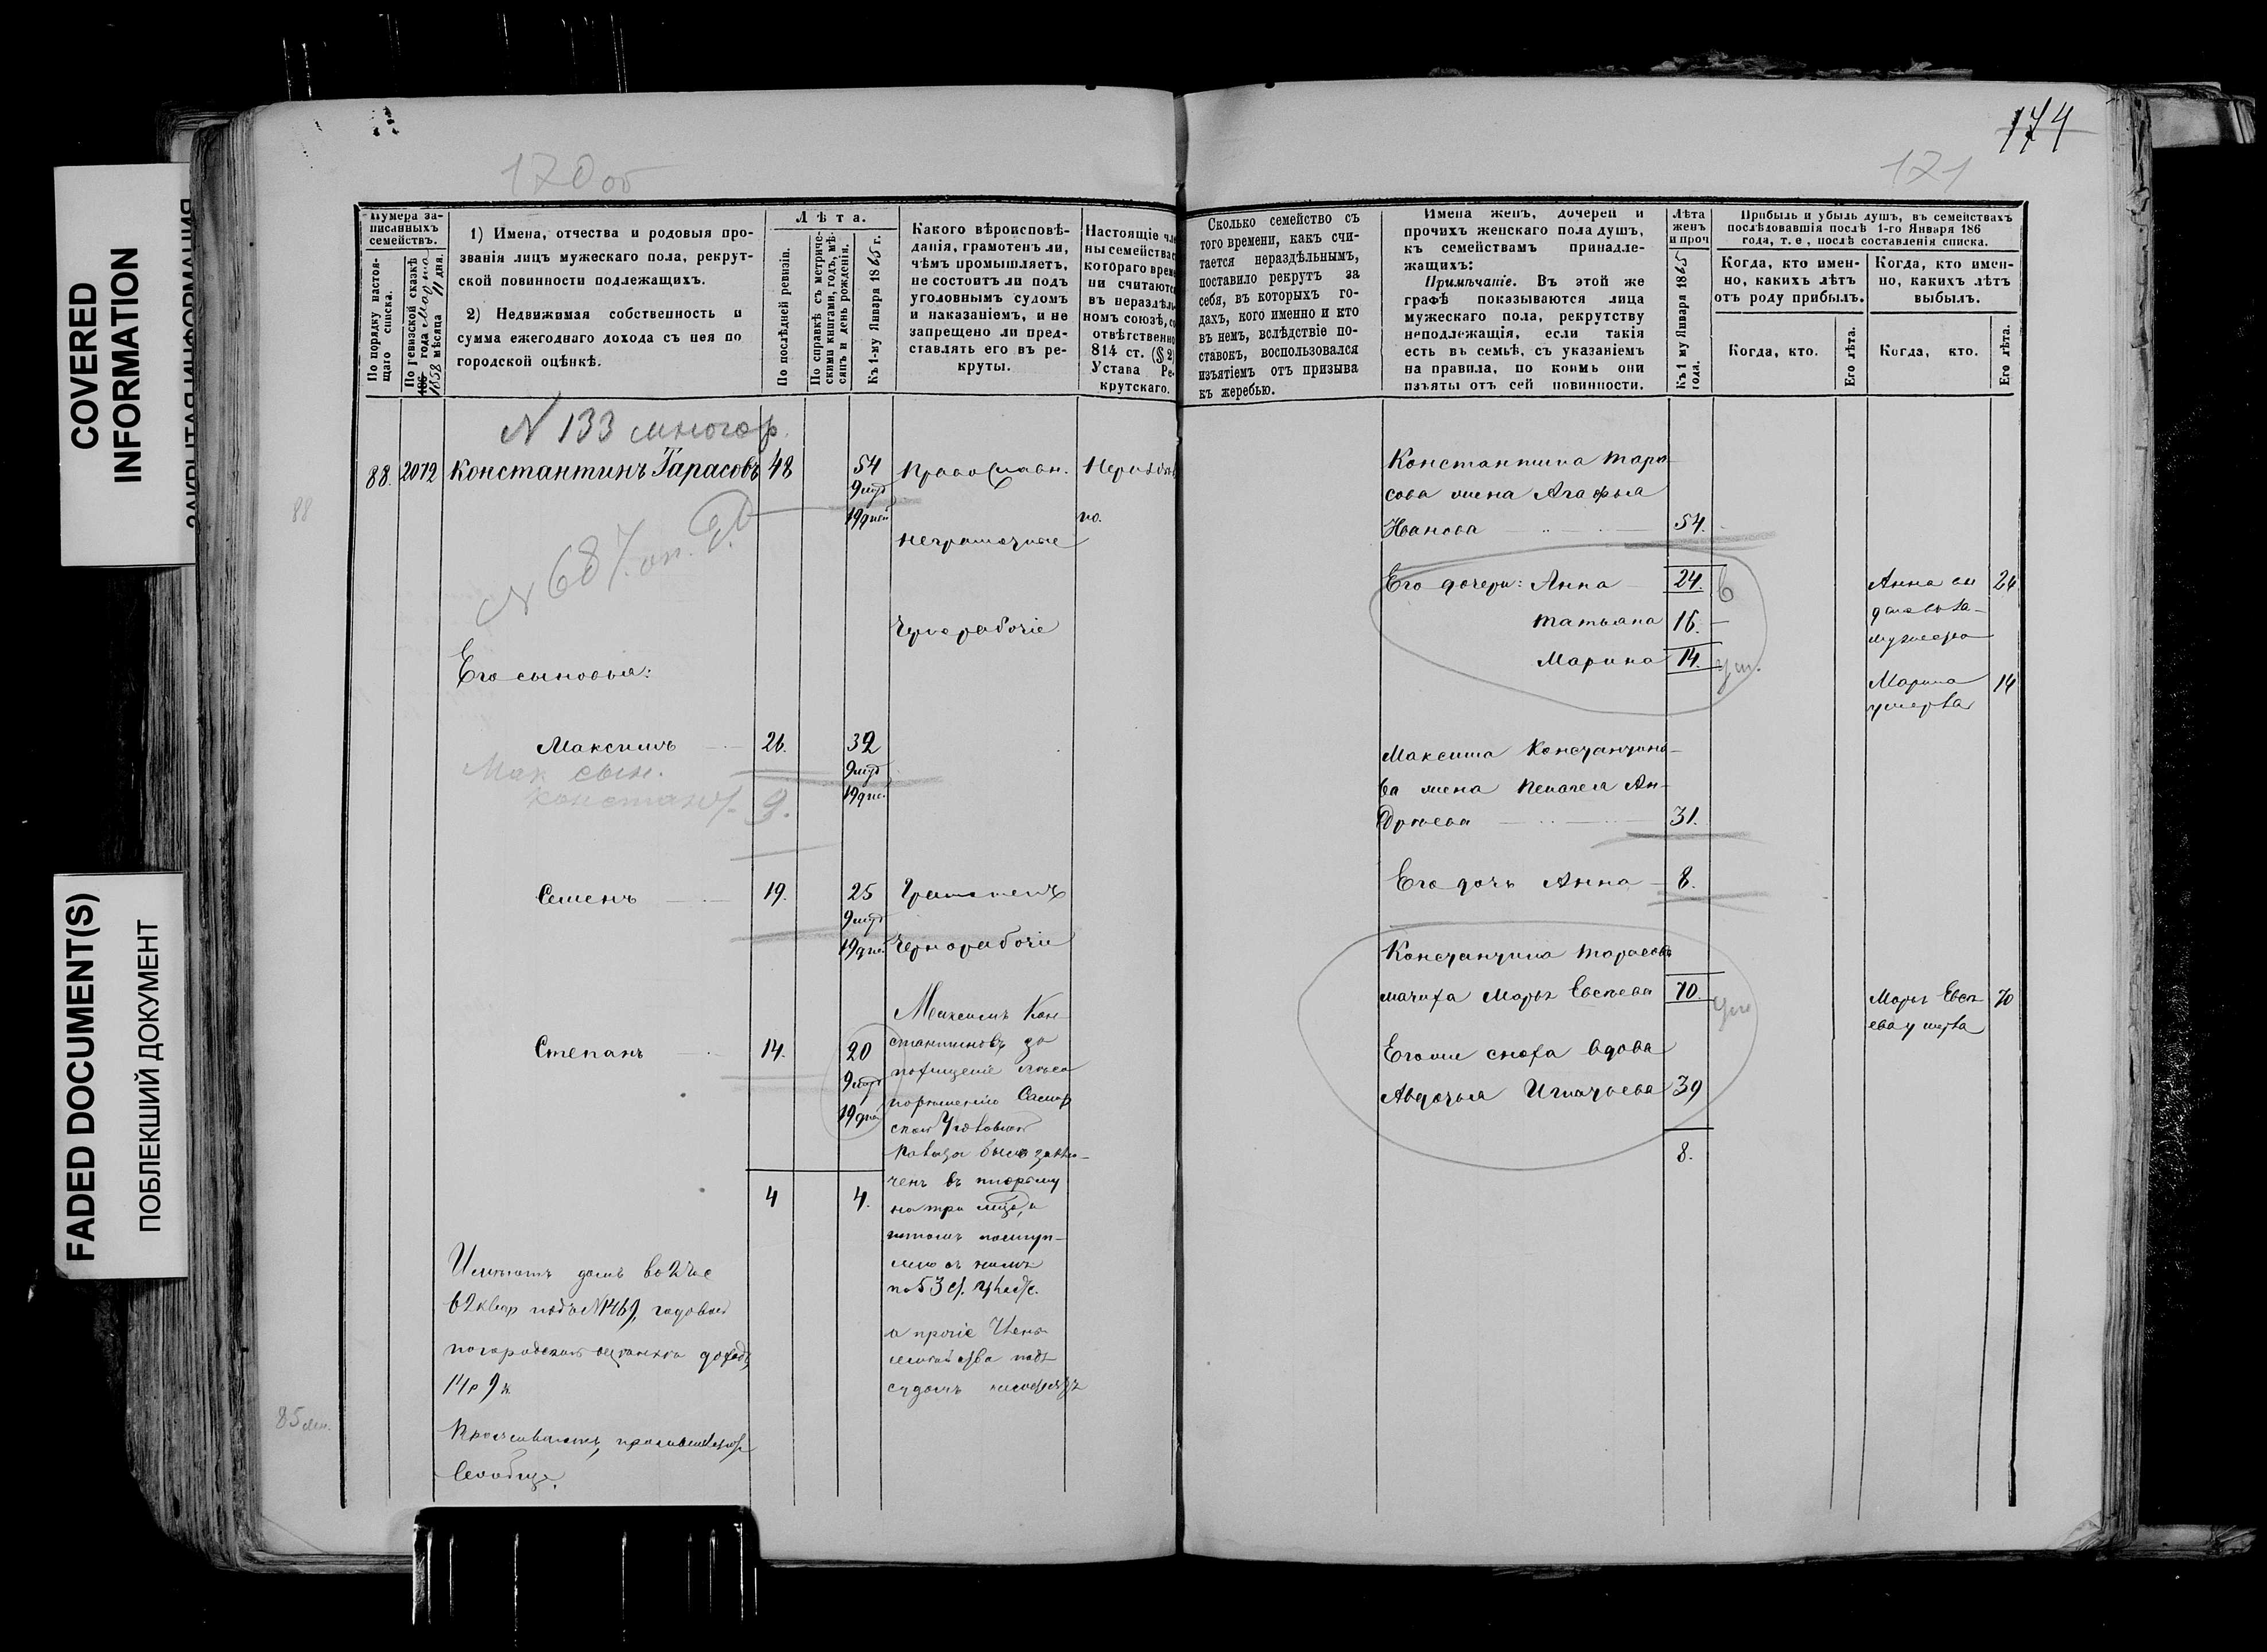 COVERED
INFORMATION
FADED DOCUMENT(S)
ПОБЛЕКШИЙ ДОКУМЕНТ
170 об
Нумера за-
писанныхъ
семействъ.
По порядку настоя-
щаго списка.
По ревизской сказкѣ
185 года
1858 мѣсяца 11 дня.
1) Имена, отчества и родовыя про-
званія лицъ мужескаго пола, рекрут-
ской повинности подлежащихъ.
2) Недвижимая собственность и
сумма ежегоднаго дохода съ нея по
городской оцѣнкѣ.
Лѣта.
По послѣдней ревизіи.
По справкѣ съ метриче-
скими книгами, годъ, мѣ-
сяцъ и день рожденія.
Къ 1-му Января 1865 г.
Какого вѣроисповѣ-
данія, грамотенъ ли,
чѣмъ промышляетъ,
не состоитъ ли подъ
уголовнымъ судомъ
и наказаніемъ, и не
запрещено ли пред-
ставлять его въ ре-
круты.
Настоящіе чле
ны семейства
котораго време
ни считаются
въ нераздѣль
номъ союзѣ, со
отвѣтственно
814 ст. (§ 2)
Устава Ре-
крутскаго.
N 133 многор.
88. 2072 Константинъ Тарасовъ 48 54 Православн. Нераздѣль
9 мѣс
19 дней но.
неграмотные
N 687
Чернорабочіе
Его сыновья:
Максимъ 26. 32
9 мѣс
19 дне.
Мак сын.
Констант. 9.
Семенъ 19. 25 Грамотенъ
9 мѣс
19 дне. Чернорабочіе
Степанъ 14. 20
9 мѣс
19 дней
Максимъ Кон
стантиновъ за
похищеніе лѣса
порѣшенію Самар
ской Уголовной
Палаты былъ заклю-
ченъ въ тюрьму
на три мѣся, а
потомъ поступ-
лено съ нимъ
по 53 ст.
а прочіе Члены
семейства подъ
судомъ несостоятъ
4 4.
Имѣютъ домъ во 2 час
въ 2 квар подъ N 1469, годовой
погородской оцѣнкѣ доходъ
14 р 9 к
Проживаютъ, промышляютъ
Сообща.
88
85
174
171
Сколько семейство съ
того времени, какъ счи-
тается нераздѣльнымъ,
поставило рекрутъ за
себя, въ которыхъ го-
дахъ, кого именно и кто
въ немъ, вслѣдствіе по-
ставокъ, воспользовался
изъятіемъ отъ призыва
къ жеребью.
Имена женъ, дочерей и
прочихъ женскаго пола душъ,
къ семействамъ принадле-
жащихъ:
Примѣчаніе. Въ этой же
графѣ показываются лица
мужескаго пола, рекрутству
неподлежащія, если такія
есть въ семьѣ, съ указаніемъ
на правила, по коимъ они
изъяты отъ сей повинности.
Лѣта
женъ
и проч
Къ 1 му Января 1865
года.
Прибыль и убыль душъ, въ семействахъ
послѣдовавшія послѣ 1-го Января 186
года, т. е, послѣ составленія списка.
Когда, кто имен-
но, какихъ лѣтъ
отъ роду прибылъ.
Когда, кто имен-
но, какихъ лѣтъ
выбылъ.
Когда, кто.
Его лѣта.
Когда, кто.
Его лѣта.
Константина Тара-
сова жена Агафья
Иванова 54.
Его дочери: Анна 24. в
Татьяна 16.
Марина 14. ум.
Анна вы 24
дана въ за-
мужество
Марина 14
умерла
Максима Константино-
ва жена Пелагея Ан-
дреева 31.
Его дочь Анна 8.
Константина Тарасова
мачиха Марья Евсѣева 70 ум
Марья Евсѣ 70
ева умерла
Егоже сноха вдова
Авдотья Игнатьева 39
8.